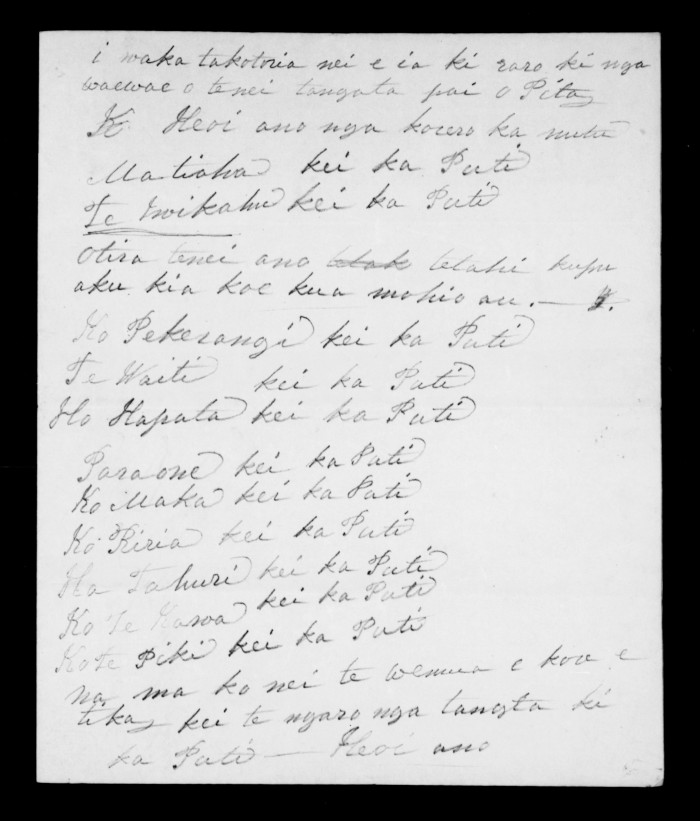 i waka takotoria nei e ia ki raro ki nga
waewae o tenei tangata pai o Pita
K Heoi ano nga korero ka mutu
Matiaha kei ka Puti
Te Iwikahu kei ka Puti
Otira tenei ano tetahi kupu
aku kia koe kua mohio au. —
Ko Pekerangi kei ka Puti
Te Waiti kei ka Puti
Ho Hapata kei ka Puti
Paraone kei ka Puti
Ko Maka kei ka Puti
Ko Riria kei ka Puti
Ha Tahuri kei ka Puti
Ko Te Kawa kei ka Puti
Ko te Piki kei ka Puti
na ma ko nei te wenua e koa e
tika kei te ngaro nga tangta ki
ka Puti — Heoi ano